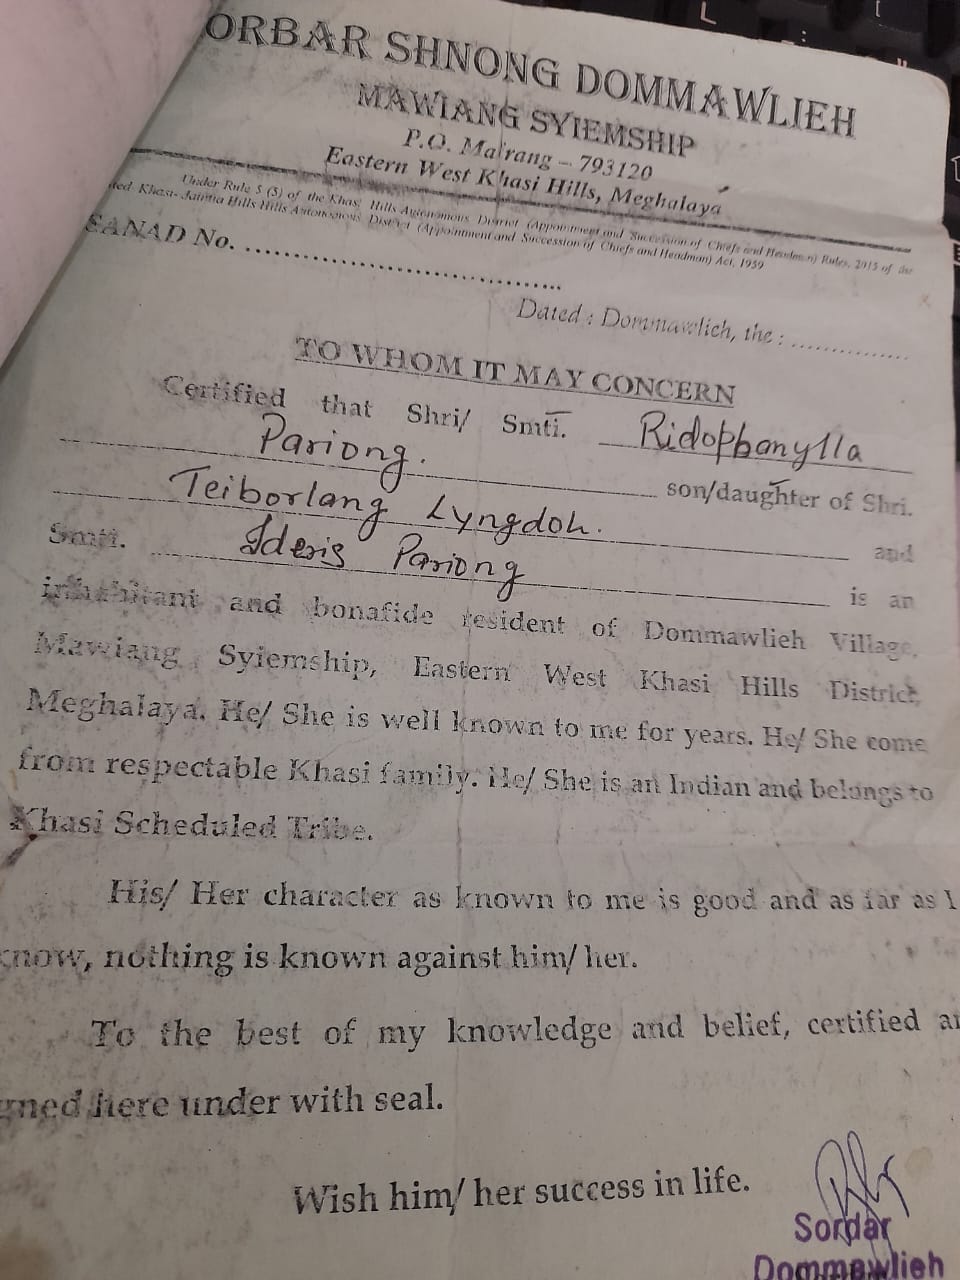 ORBAR SHNONG DOMMAWLIEH
MAWIANG SYIEMSHIP
P.O. Mairang – 793120
Eastern West Khasi Hills, Meghalaya
Under Rule 5 (5) of the Khasi Hills Autonomous District (Appointment and Succession of Chiefs and Headman) Rules, 2015 of the
ted Khasi- Jaintia Hills Hills Autonomous District (Appointment and Succession of Chiefs and Headman) Act, 1959
SANAD No. ........................................
Dated : Dommawlieh, the : ...............
TO WHOM IT MAY CONCERN
Certified that Shri/ Smti. Ridophanylla
Pariong. son/daughter of Shri.
Teiborlang Lyngdoh. and
Smti. Ideris Pariong is an
inhabitant and bonafide resident of Dommawlieh Village,
Mawiang Syiemship, Eastern West Khasi Hills District,
Meghalaya. He/ She is well known to me for years. He/ She come
from respectable Khasi family. He/ She is an Indian and belongs to
Khasi Scheduled Tribe.
His/ Her character as known to me is good and as far as I
know, nothing is known against him/ her.
To the best of my knowledge and belief, certified an
gned here under with seal.
Wish him/ her success in life.
Sordar
Dommawlieh